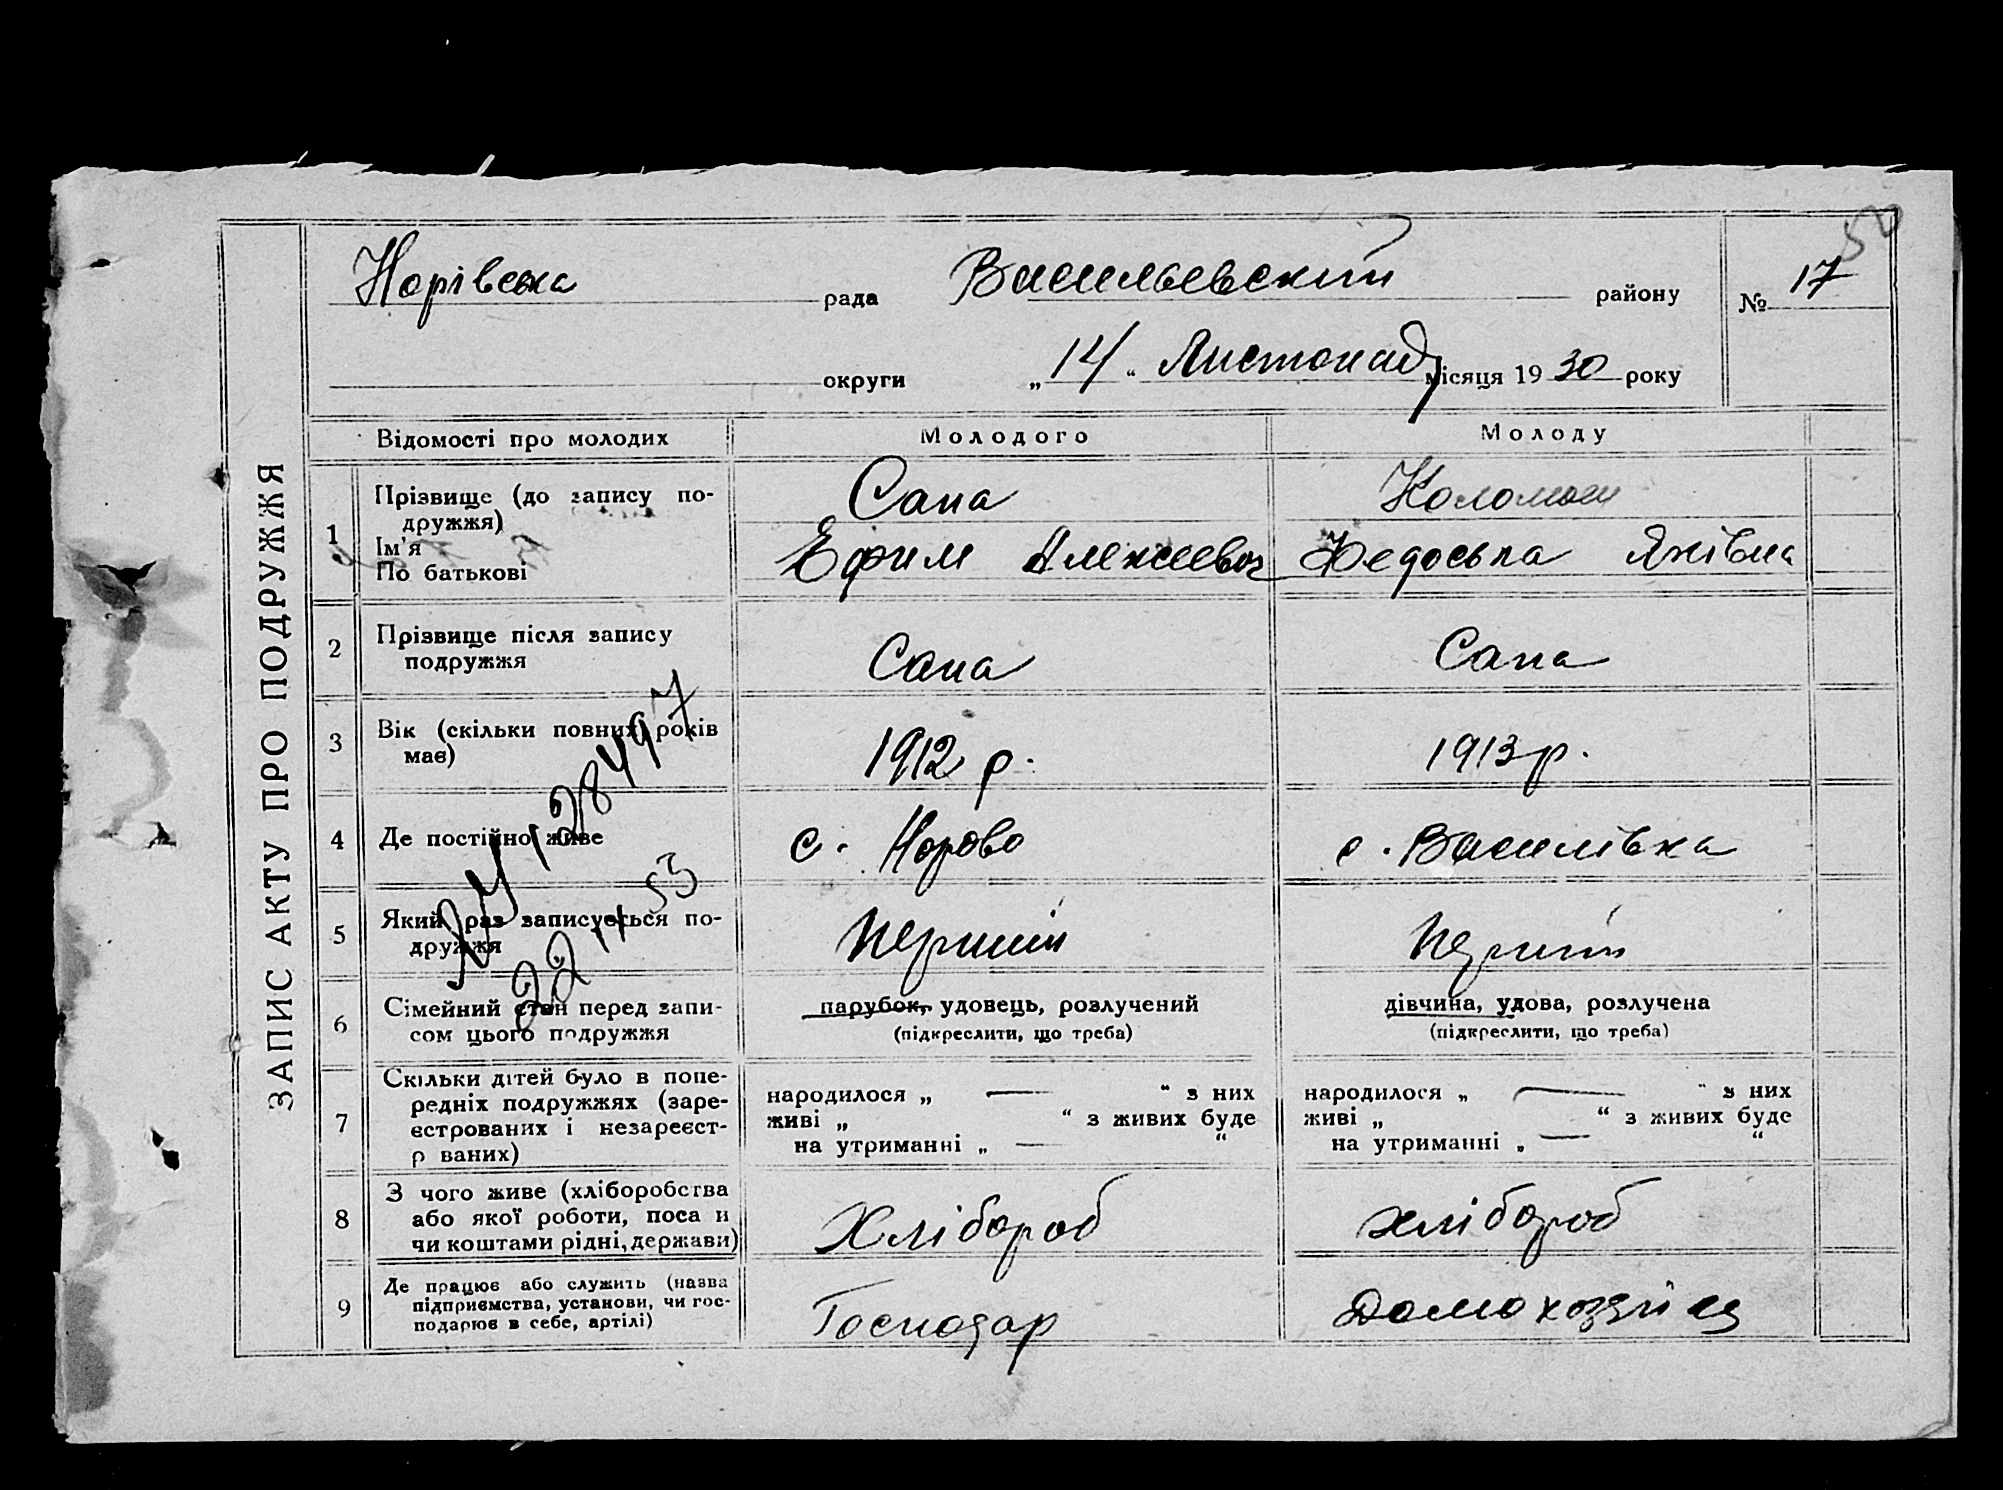 50
Норівська рада Васильевский району № 17
округи „14“ Листопад місяця 1930 року
ЗАПИС АКТУ ПРО ПОДРУЖЖЯ
Відомості про молодих Молодого Молоду
1 Прізвище (до запису по-
дружжя)
Ім'я
По батькові
Сапа
Ефим Алексеевич
Федоська Яківна
2 Прізвище після запису
подружжя
Сапа Сапа
3 Вік (скільки повних років
має)
1912 р. 1913 р.
4 Де постійно живе с. Норово с. Василівка
5 Який раз записується по-
дружжя
Перший Перший
6 Сімейний стан перед запи-
сом цього подружжя
парубок, удовець, розлучений
(підкреслити, що треба)
дівчина, удова, розлучена
(підкреслити, що треба)
7 Скільки дітей було в попе-
редніх подружжях (заре-
єстрованих і незареєст-
р ваних)
народилося „ — “ з них
живі „ “ з живих буде
на утриманні „ — “
народилося „ — “ з них
живі „ “ з живих буде
на утриманні „ — “
8 З чого живе (хліборобства
або якої роботи, поса и
чи коштами рідні, держави)
Хлібороб хлібороб
9 Де працює або служить (назва
підприємства, установи, чи гос-
подарює в себе, артілі)
Господар
128497
22 11 53